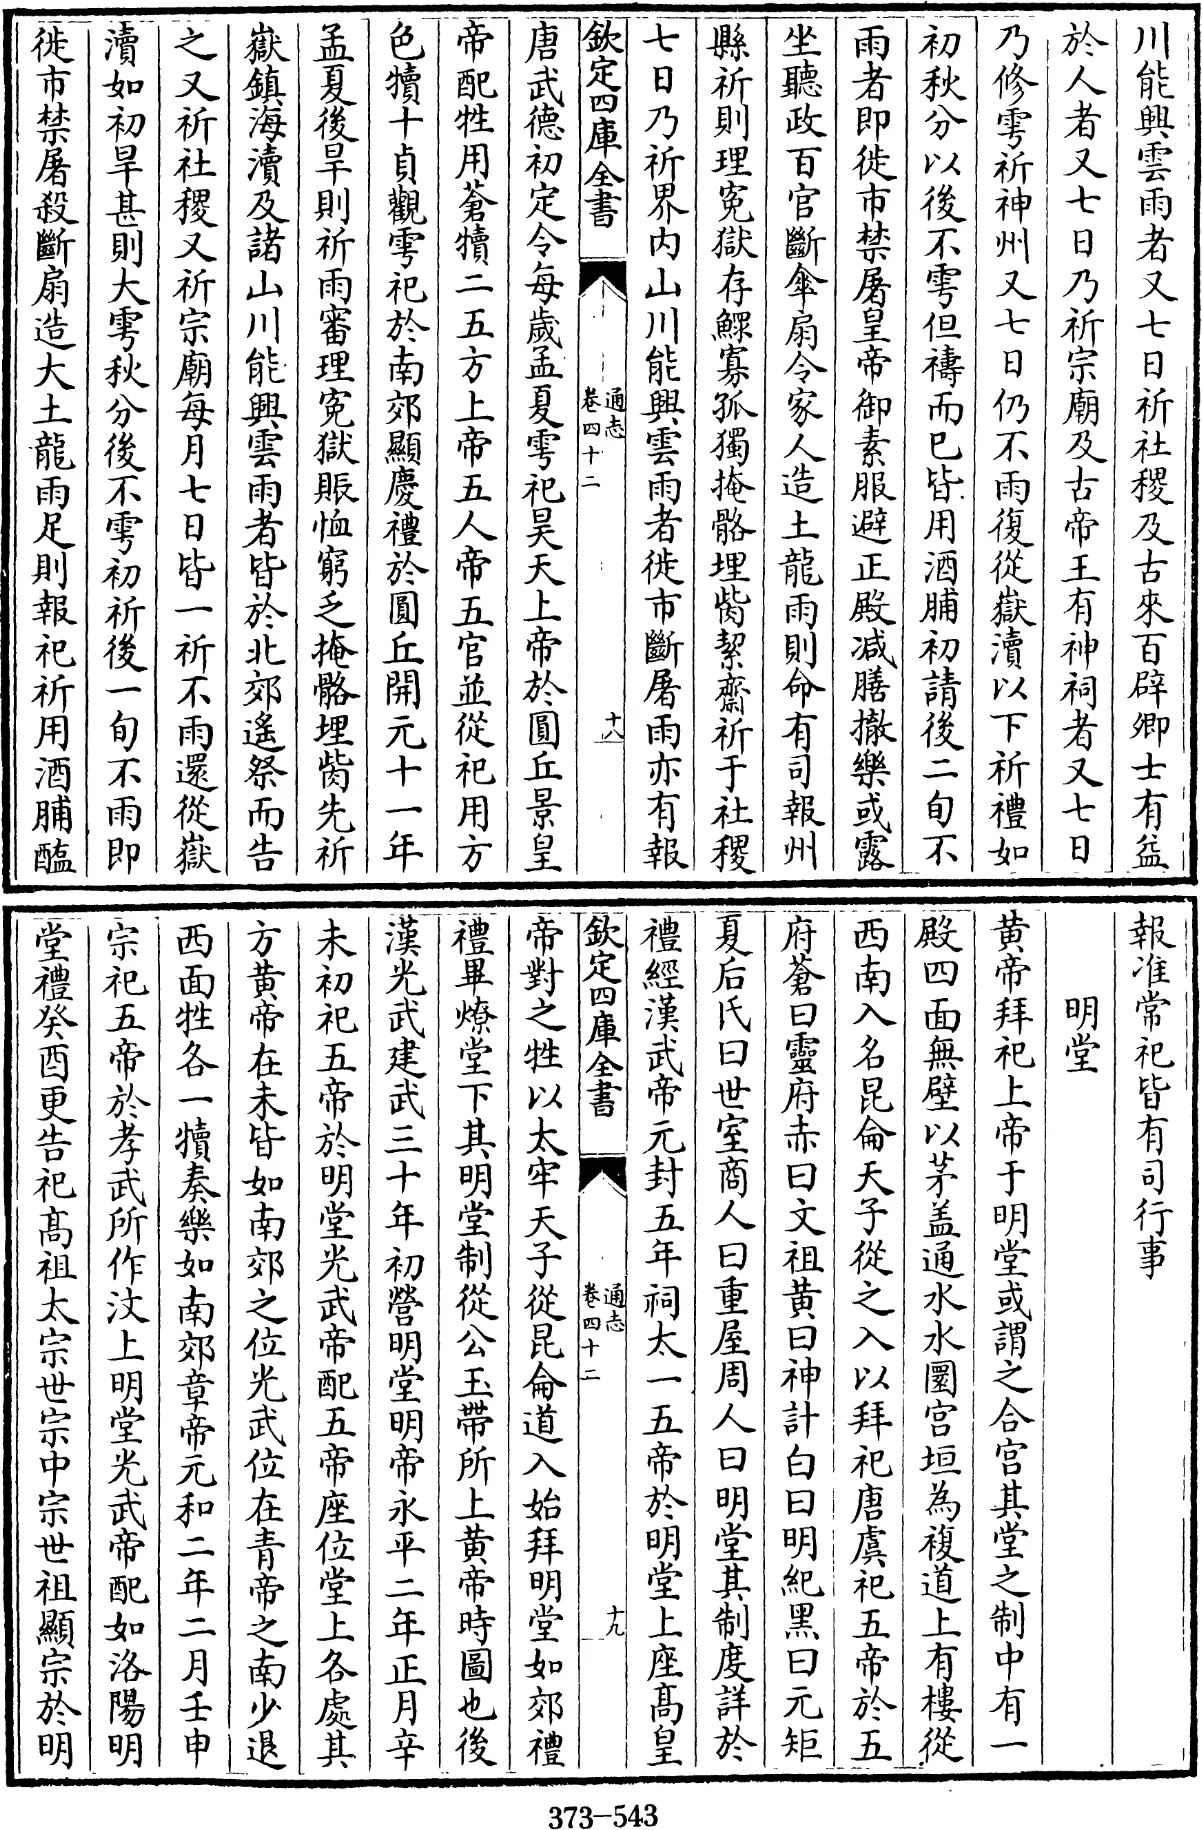 川能興雲雨者又七日祈社稷及古來百辟卿士有益
於人者又七日乃祈宗廟及古帝王有神祠者又七日
乃修雩祈神州又七日仍不雨復從嶽瀆以下祈禮如
初秋分以後不雩但禱而已皆用酒脯初請後二旬不
雨者即徙市禁屠皇帝御素服避正殿減膳撤樂或露
坐聽政百官斷傘扇令家人造土龍雨則命有司報州
縣祈則理冤獄存鰥寡孤獨掩骼埋胔絜齋祈于社稷
七日乃祈界内山川能興雲雨者徙市斷屠雨亦有報
欽定四庫全書
通志
卷四十二
十八
唐武德初定令每歲孟夏雩祀昊天上帝於圓丘景皇
帝配牲用蒼犢二五方上帝五人帝五官並從祀用方
色犢十貞觀雩祀於南郊顯慶禮於圓丘開元十一年
孟夏後旱則祈雨審理冤獄賑恤窮乏掩骼埋胔先祈
嶽鎮海瀆及諸山川能興雲雨者皆於北郊遙祭而告
之又祈社稷又祈宗廟每月七日皆一祈不雨還從嶽
瀆如初旱甚則大雩秋分後不雩初祈後一旬不雨即
徙市禁屠殺斷扇造大土龍雨足則報祀祈用酒脯醢
報准常祀皆有司行事
明堂
黄帝拜祀上帝于明堂或謂之合宫其堂之制中有一
殿四面無壁以茅盖通水水圜宫垣為複道上有樓從
西南入名昆侖天子從之入以拜祀唐虞祀五帝於五
府蒼曰靈府赤曰文祖黄曰神計白曰明紀黑曰元矩
夏后氏曰世室商人曰重屋周人曰明堂其制度詳於
禮經漢武帝元封五年祠太一五帝於明堂上座髙皇
欽定四庫全書
通志
卷四十二
十九
帝對之牲以太牢天子從昆侖道入始拜明堂如郊禮
禮畢燎堂下其明堂制從公玉帶所上黄帝時圖也後
漢光武建武三十年初營明堂明帝永平二年正月辛
未初祀五帝於明堂光武帝配五帝座位堂上各處其
方黄帝在未皆如南郊之位光武位在青帝之南少退
西面牲各一犢奏樂如南郊章帝元和二年二月壬申
宗祀五帝於孝武所作汶上明堂光武帝配如洛陽明
堂禮癸酉更告祀髙祖太宗世宗中宗世祖顯宗於明
373-543